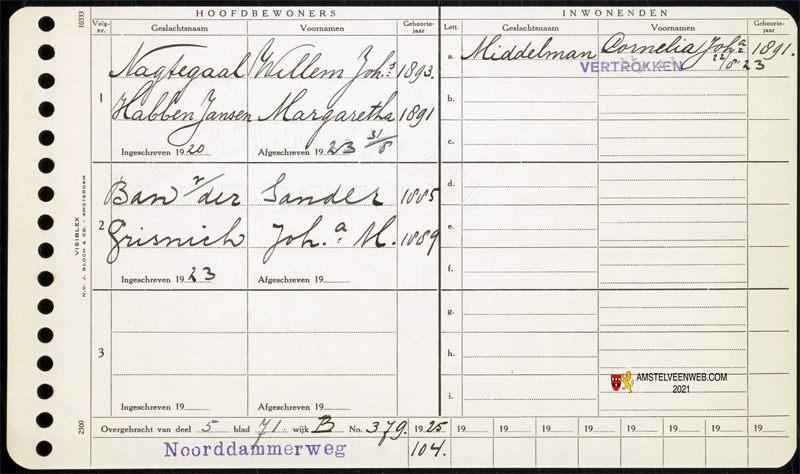 HOOFDBEWONERS
Volg-nr. Geslachtsnaam Voornamen Geboorte-jaar
1
Nagtegaal Willem Joh.s 1893.
Habben Jansen Margaretha 1891
Ingeschreven 1920 Afgeschreven 1923 31/8
2
Ban v/der Sander 1885
Grisnich Joh.a M. 1889
Ingeschreven 1923 Afgeschreven 19
3
Ingeschreven 19 Afgeschreven 19
INWONENDEN
Lett. Geslachtsnaam Voornamen Geboorte-jaar
a. Middelman Cornelia Joh.a 1891.
VERTROKKEN 22/8 23
b.
c.
d.
e.
f.
g.
h.
i.
AMSTELVEENWEB.COM
2021
Overgebracht van deel 5 blad 71. wijk B No. 379. 1925 19 19 19 19 19 19 19 19
Noorddammerweg 104.
10333
VISIBLEX
N.V. J. BLOCH & CO. - AMSTERDAM
2500